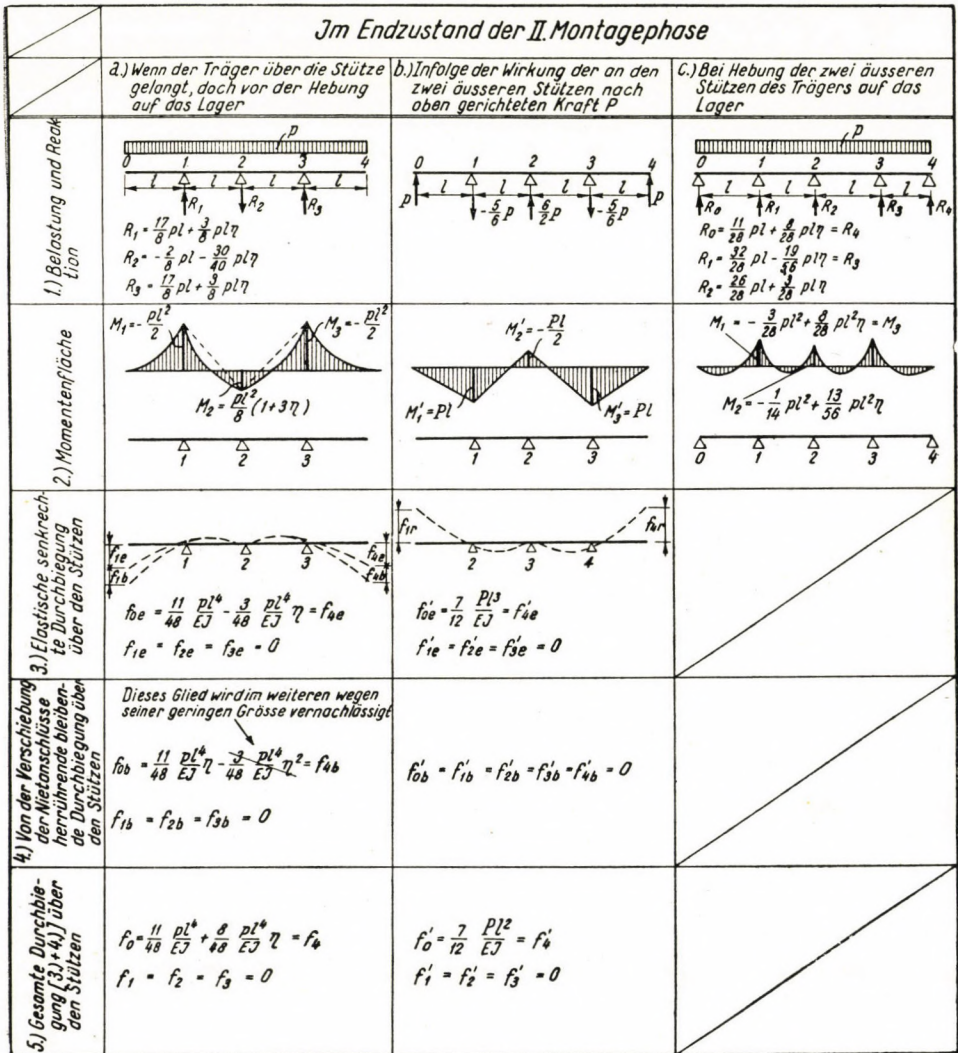 Jm Endzustand der II. Montagephase
a.) Wenn der Träger über die Stütze
gelangt, doch vor der Hebung
auf das Lager
b.) Infolge der Wirkung der an den
zwei äusseren Stützen nach
oben gerichteten Kraft P
c.) Bei Hebung der zwei äusseren
Stützen des Trägers auf das
Lager
1.) Belastung und Reak
tion
p
0 1 2 3 4
l l l l
R₁ R₂ R₃
R₁ = 17/8 pl + 3/8 plη
R₂ = - 2/8 pl - 30/40 plη
R₃ = 17/8 pl + 3/8 plη
0 1 2 3 4
P l l l l P
-5/6 P 6/2 P -5/6 P
p
0 1 2 3 4
l l l l
R₀ R₁ R₂ R₃ R₄
R₀ = 11/28 pl + 8/28 plη = R₄
R₁ = 32/28 pl - 19/56 plη = R₃
R₂ = 26/28 pl + 3/28 plη
2.) Momentenfläche
M₁ = - pl²/2
M₃ = - pl²/2
M₂ = pl²/8 (1+3η)
1 2 3
M₂' = - Pl/2
M₁' = Pl
M₃' = Pl
1 2 3
M₁ = - 3/28 pl² + 8/28 pl²η = M₃
M₂ = - 1/14 pl² + 13/56 pl²η
0 1 2 3 4
3.) Elastische senkrech-
te Durchbiegung
über den Stützen
f₁e
f₁b
1 2 3
f₄e
f₄b
f₀e = 11/48 pl⁴/EJ - 3/48 pl⁴/EJ η = f₄e
f₁e = f₂e = f₃e = 0
f₁r
2 3 4
f₄r
f₀e' = 7/12 Pl³/EJ = f₄e'
f₁e' = f₂e' = f₃e' = 0
4.) Von der Verschiebung
der Nietanschlüsse
herrührende bleiben-
de Durchbiegung über
den Stützen
Dieses Glied wird im weiteren wegen
seiner geringen Grösse vernachlässigt
f₀b = 11/48 pl⁴/EJ η - 3/48 pl⁴/EJ η² = f₄b
f₁b = f₂b = f₃b = 0
f₀b' = f₁b' = f₂b' = f₃b' = f₄b' = 0
5.) Gesamte Durchbie-
gung [3.)+4.)] über
den Stützen
f₀ = 11/48 pl⁴/EJ + 8/48 pl⁴/EJ η = f₄
f₁ = f₂ = f₃ = 0
f₀' = 7/12 Pl²/EJ = f₄'
f₁' = f₂' = f₃' = 0